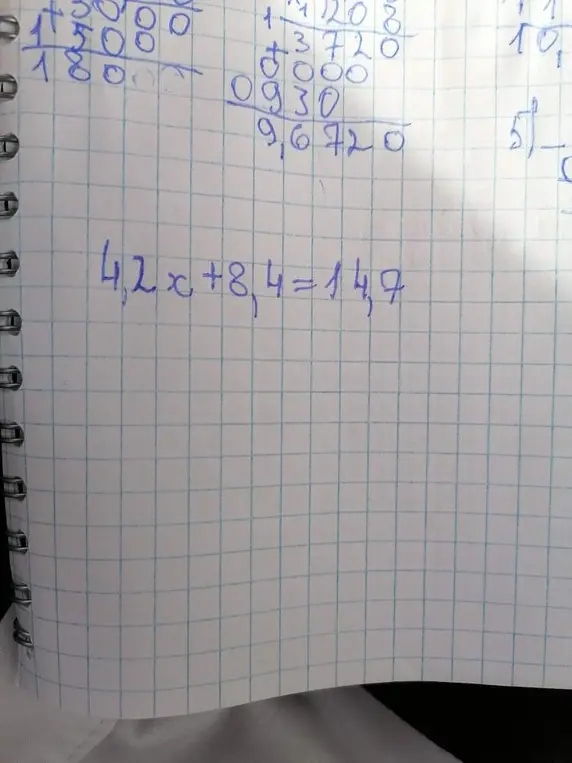 1500
180
1208
+3720
0000
0930
9,6720
10,
5)
4,2x+8,4=14,7